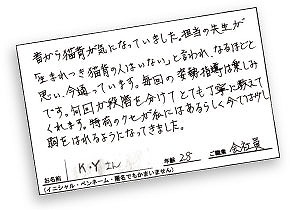 昔から猫背が気になっていました。担当の先生が
「生まれつき猫背の人はいない」と言われ、なるほどと
思い、今通っています。毎回の姿勢指導は楽しみ
です。何回か段階を分けてとても丁寧に教えて
くれます。特有のクセが私にはあるらしく今では少し
胸をはれるようになってきました。
お名前 K.Yさん 年齢 28 ご職業 会社員
(イニシャル・ペンネーム・匿名でもかまいません)